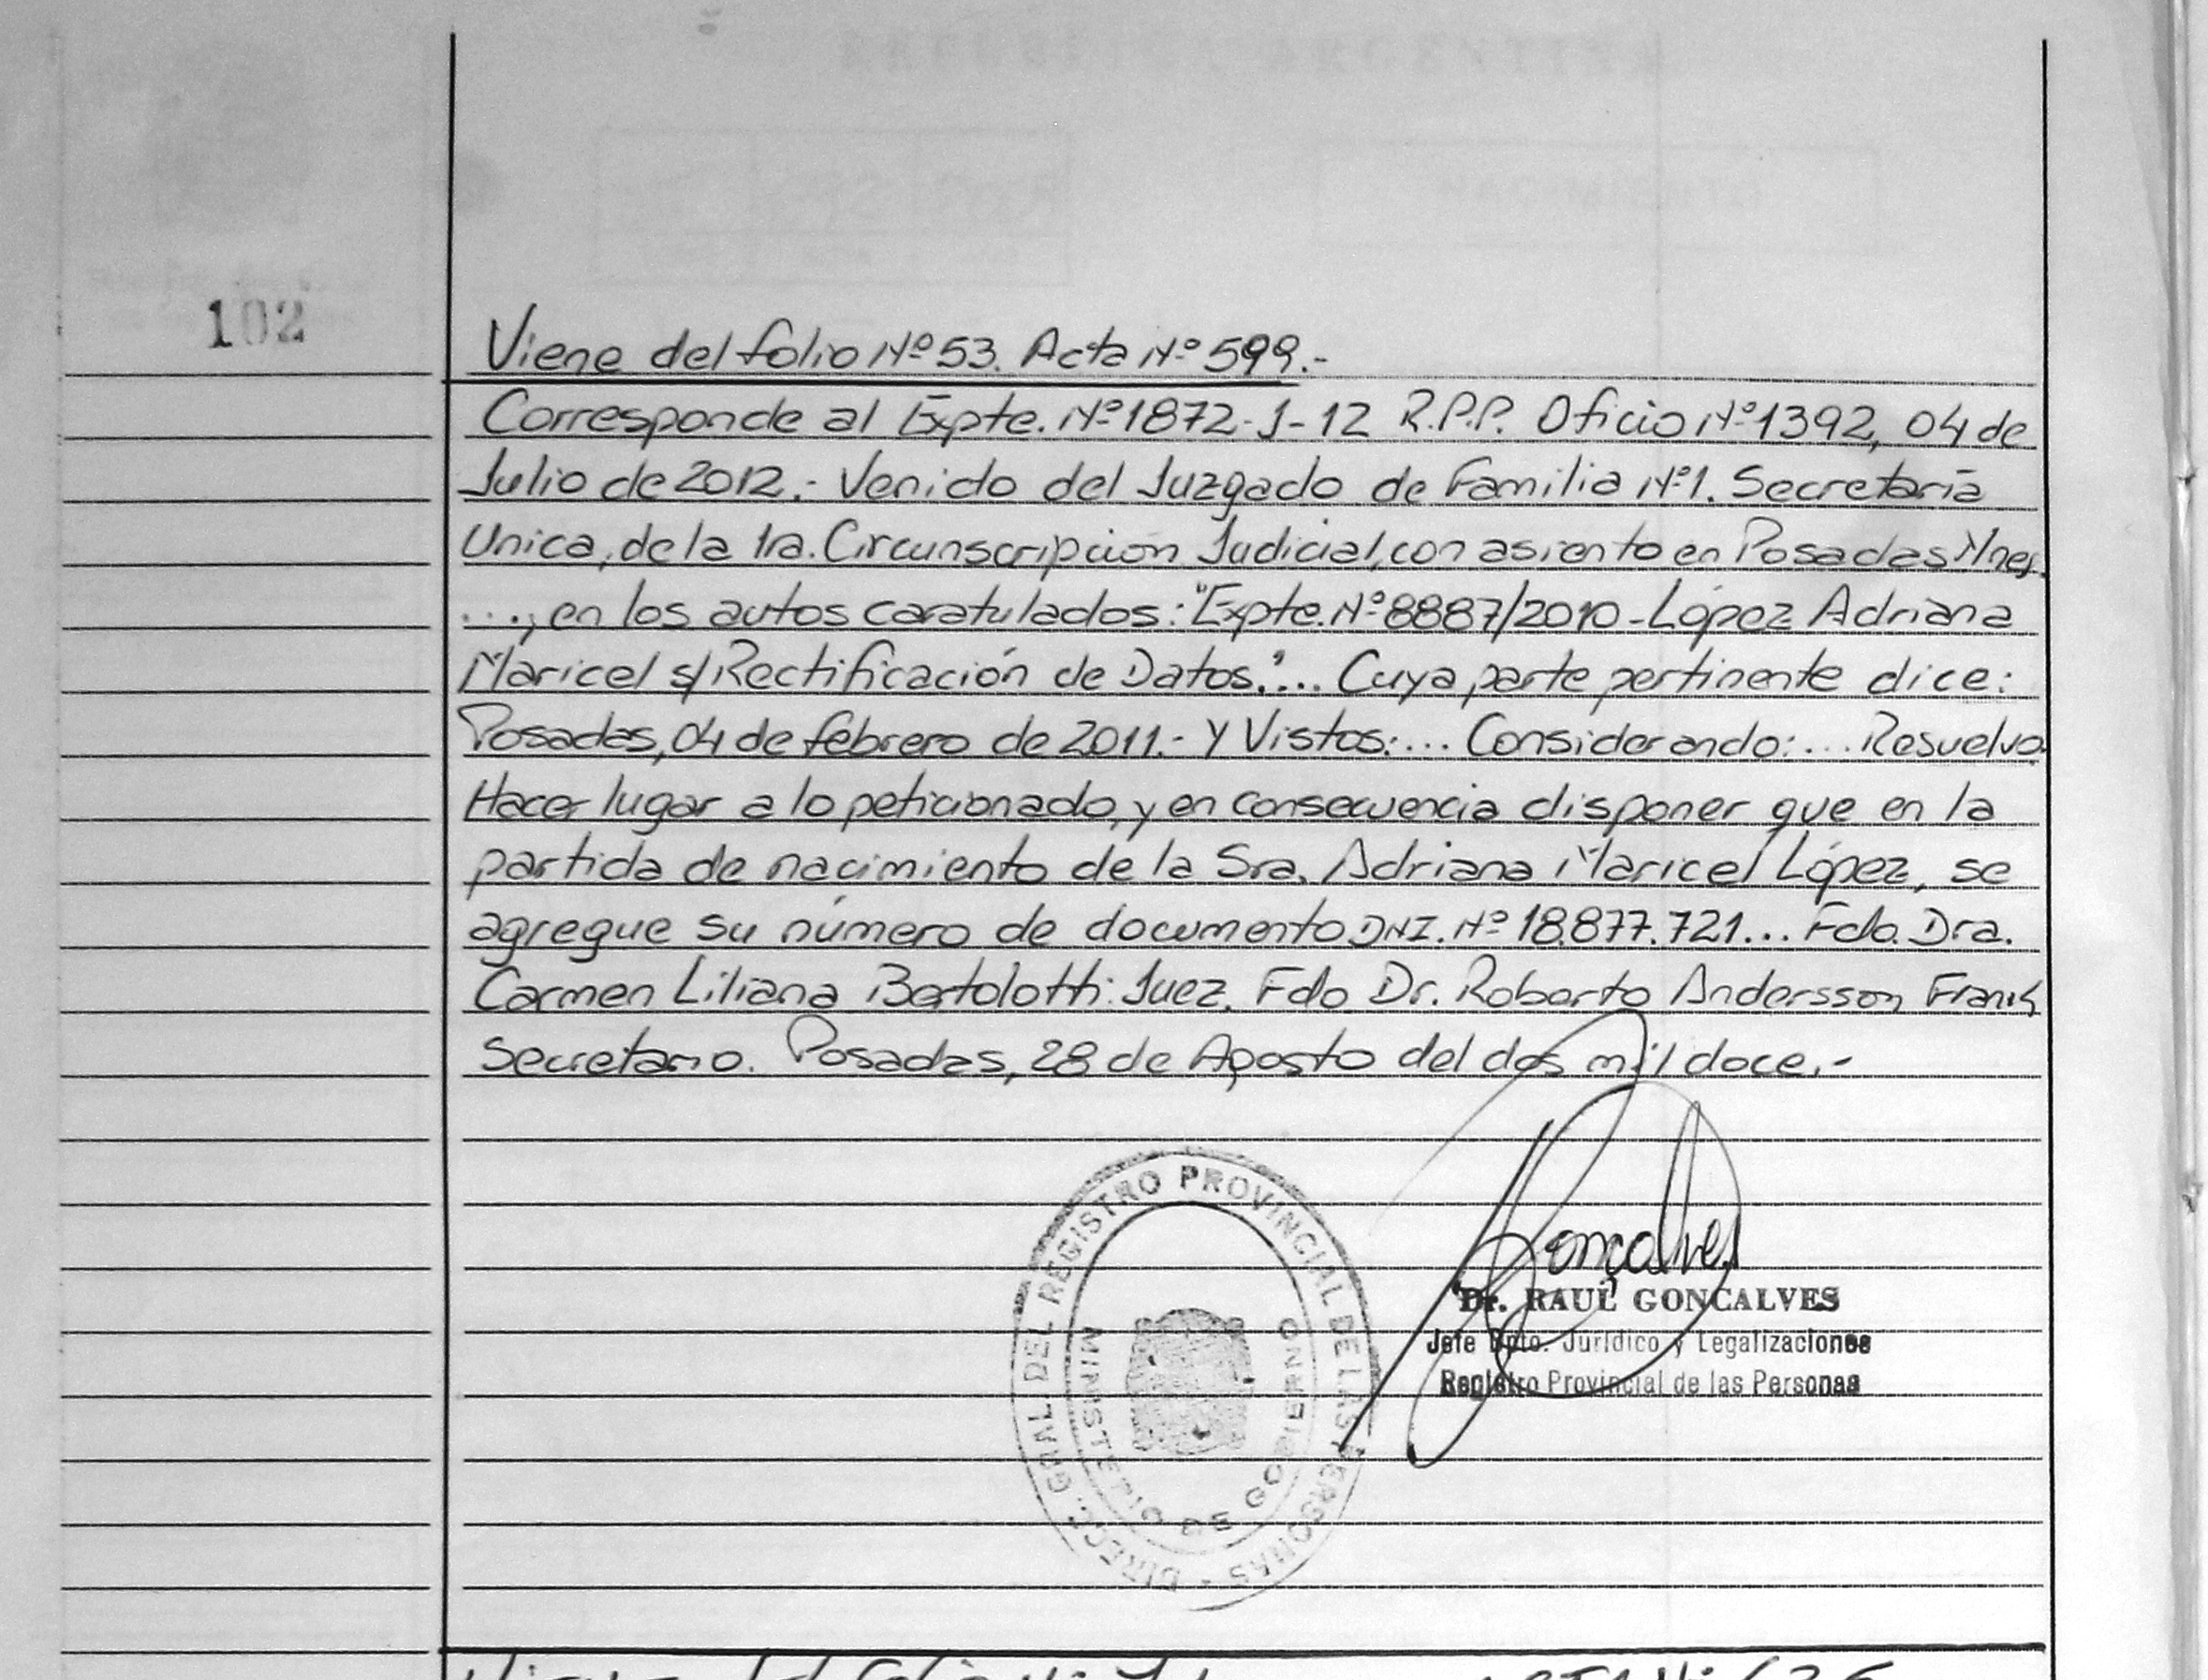 102
Viene del folio Nº 53. Acta Nº 599.-
Corresponde al Expte. Nº 1872-J-12 R.P.P. Oficio Nº 1392, 04 de
Julio de 2012.- Venido del Juzgado de Familia Nº1. Secretaría
Unica, de la 1ra. Circunscripción Judicial, con asiento en Posadas Mnes.
..., en los autos caratulados: "Expte. Nº 8887/2010 - López Adriana
Maricel s/Rectificación de Datos."... Cuya parte pertinente dice:
Posadas, 04 de febrero de 2011.- Y Vistos:... Considerando:... Resuelvo.
Hacer lugar a lo peticionado, y en consecuencia disponer que en la
partida de nacimiento de la Sra. Adriana Maricel López, se
agregue su número de documento DNI. Nº 18.877.721... Fdo. Dra.
Carmen Liliana Bertolotti: Juez. Fdo Dr. Roberto Andersson
Secretario. Posadas, 28 de Agosto del dos mil doce.-
DIRECC. GRAL. DEL REGISTRO PROVINCIAL DE LAS PERSONAS
MINISTERIO DE GOBIERNO
Gonçalves
Dr. RAUL GONCALVES
Jefe Dpto. Jurídico y Legalizaciones
Registro Provincial de las Personas